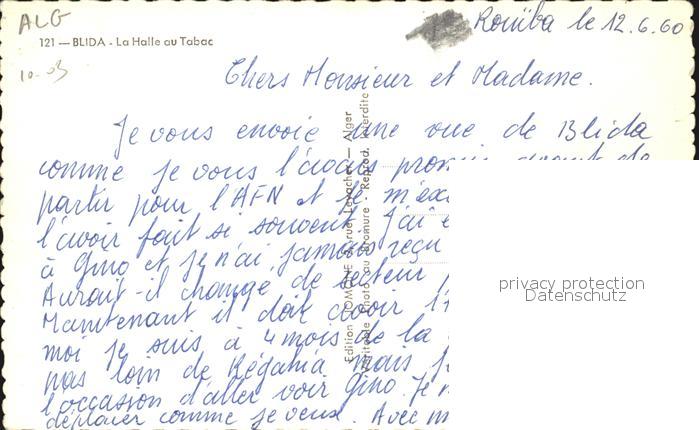 ALG
Rouïba le 12.6.60
121 — BLIDA - La Halle au Tabac
10-03
Chers Monsieur et Madame.
Je vous envoie une vue de Blida
comme je vous l'avais
partir pour l'AFN et je
l'avoir fait si souvent. J'ai
à Gino et je n'ai jamais reçu
Aurait-il changé de secteur
Maintenant il doit avoir
moi je suis à 4 mois de la
pas loin de Régahia mais
l'occasion d'aller voir Gino. Je
déplacer comme je veux. Avec
Edition JOMONE rue Levacher — Alger
Véritable Photo au Bromure - Reprod. Interdite
privacy protection
Datenschutz